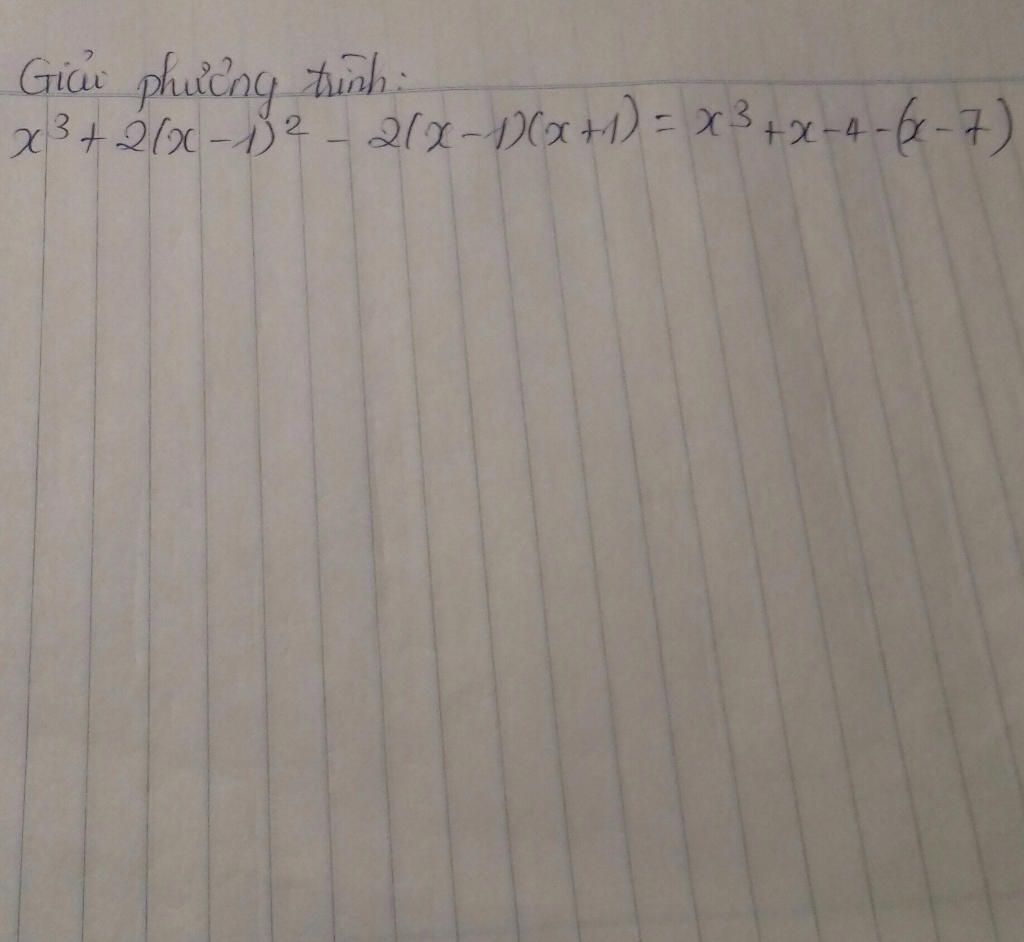 Giải phương trình:
x³ + 2(x - 1)² - 2(x - 1)(x + 1) = x³ + x - 4 - (x - 7)